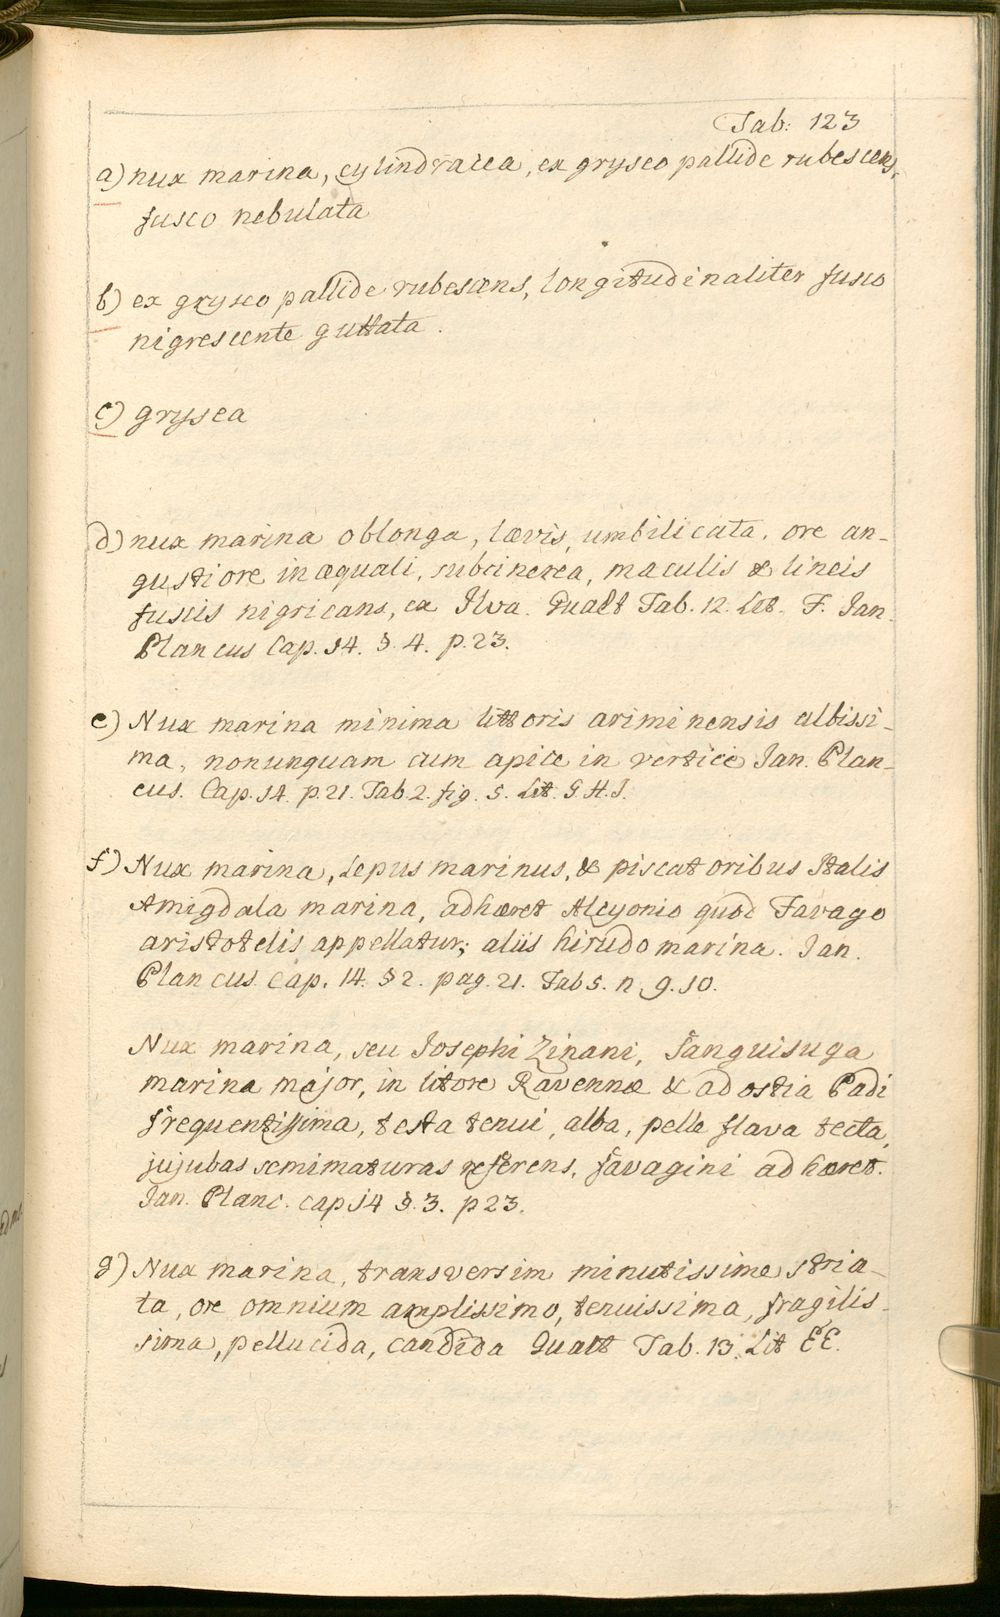 Tab: 123
a) nux marina, cylindracea, ex gryseo pallide rubescens,
fusco nebulata
b) ex gryseo pallide rubescens, longitudinaliter fusco
nigrescente guttata.
c) grysea
d) nux marina oblonga, lævis, umbilicata, ore an-
gustiore inæquali, subcinerea, maculis & lineis
fuscis nigricans, ex Ilva. Gualt Tab. 12. Let. F. Jan.
Plancus Cap. 14. §. 4. p. 23.
e) Nux marina minima littoris ariminensis albissi-
ma, nonunquam cum apice in vertice Jan. Plan-
cus. Cap. 14. p. 21. Tab 2. fig. 5. Lit. G. H. I.
f) Nux marina, Lepus marinus, & piscatoribus Italis
Amigdala marina, adhæret Alcyonio quod Favago
aristotelis appellatur; aliis hirudo marina. Jan.
Plancus Cap. 14. § 2. pag. 21. Tab 5. n. 9. 10.
Nux marina, seu Josephi Zinani, Sanguisuga
marina major, in litore Ravennæ & ad ostia Padi
frequentissima, testa tenui, alba, pelle flava tecta,
jujubas semimaturas referens, favagini adhæret.
Jan. Planc. cap 14 §. 3. p 23.
g) Nux marina, transversim minutissime stria-
ta, ore omnium amplissimo, tenuissima, fragilis-
sima, pellucida, candida Gualt Tab. 13. Lit EE.